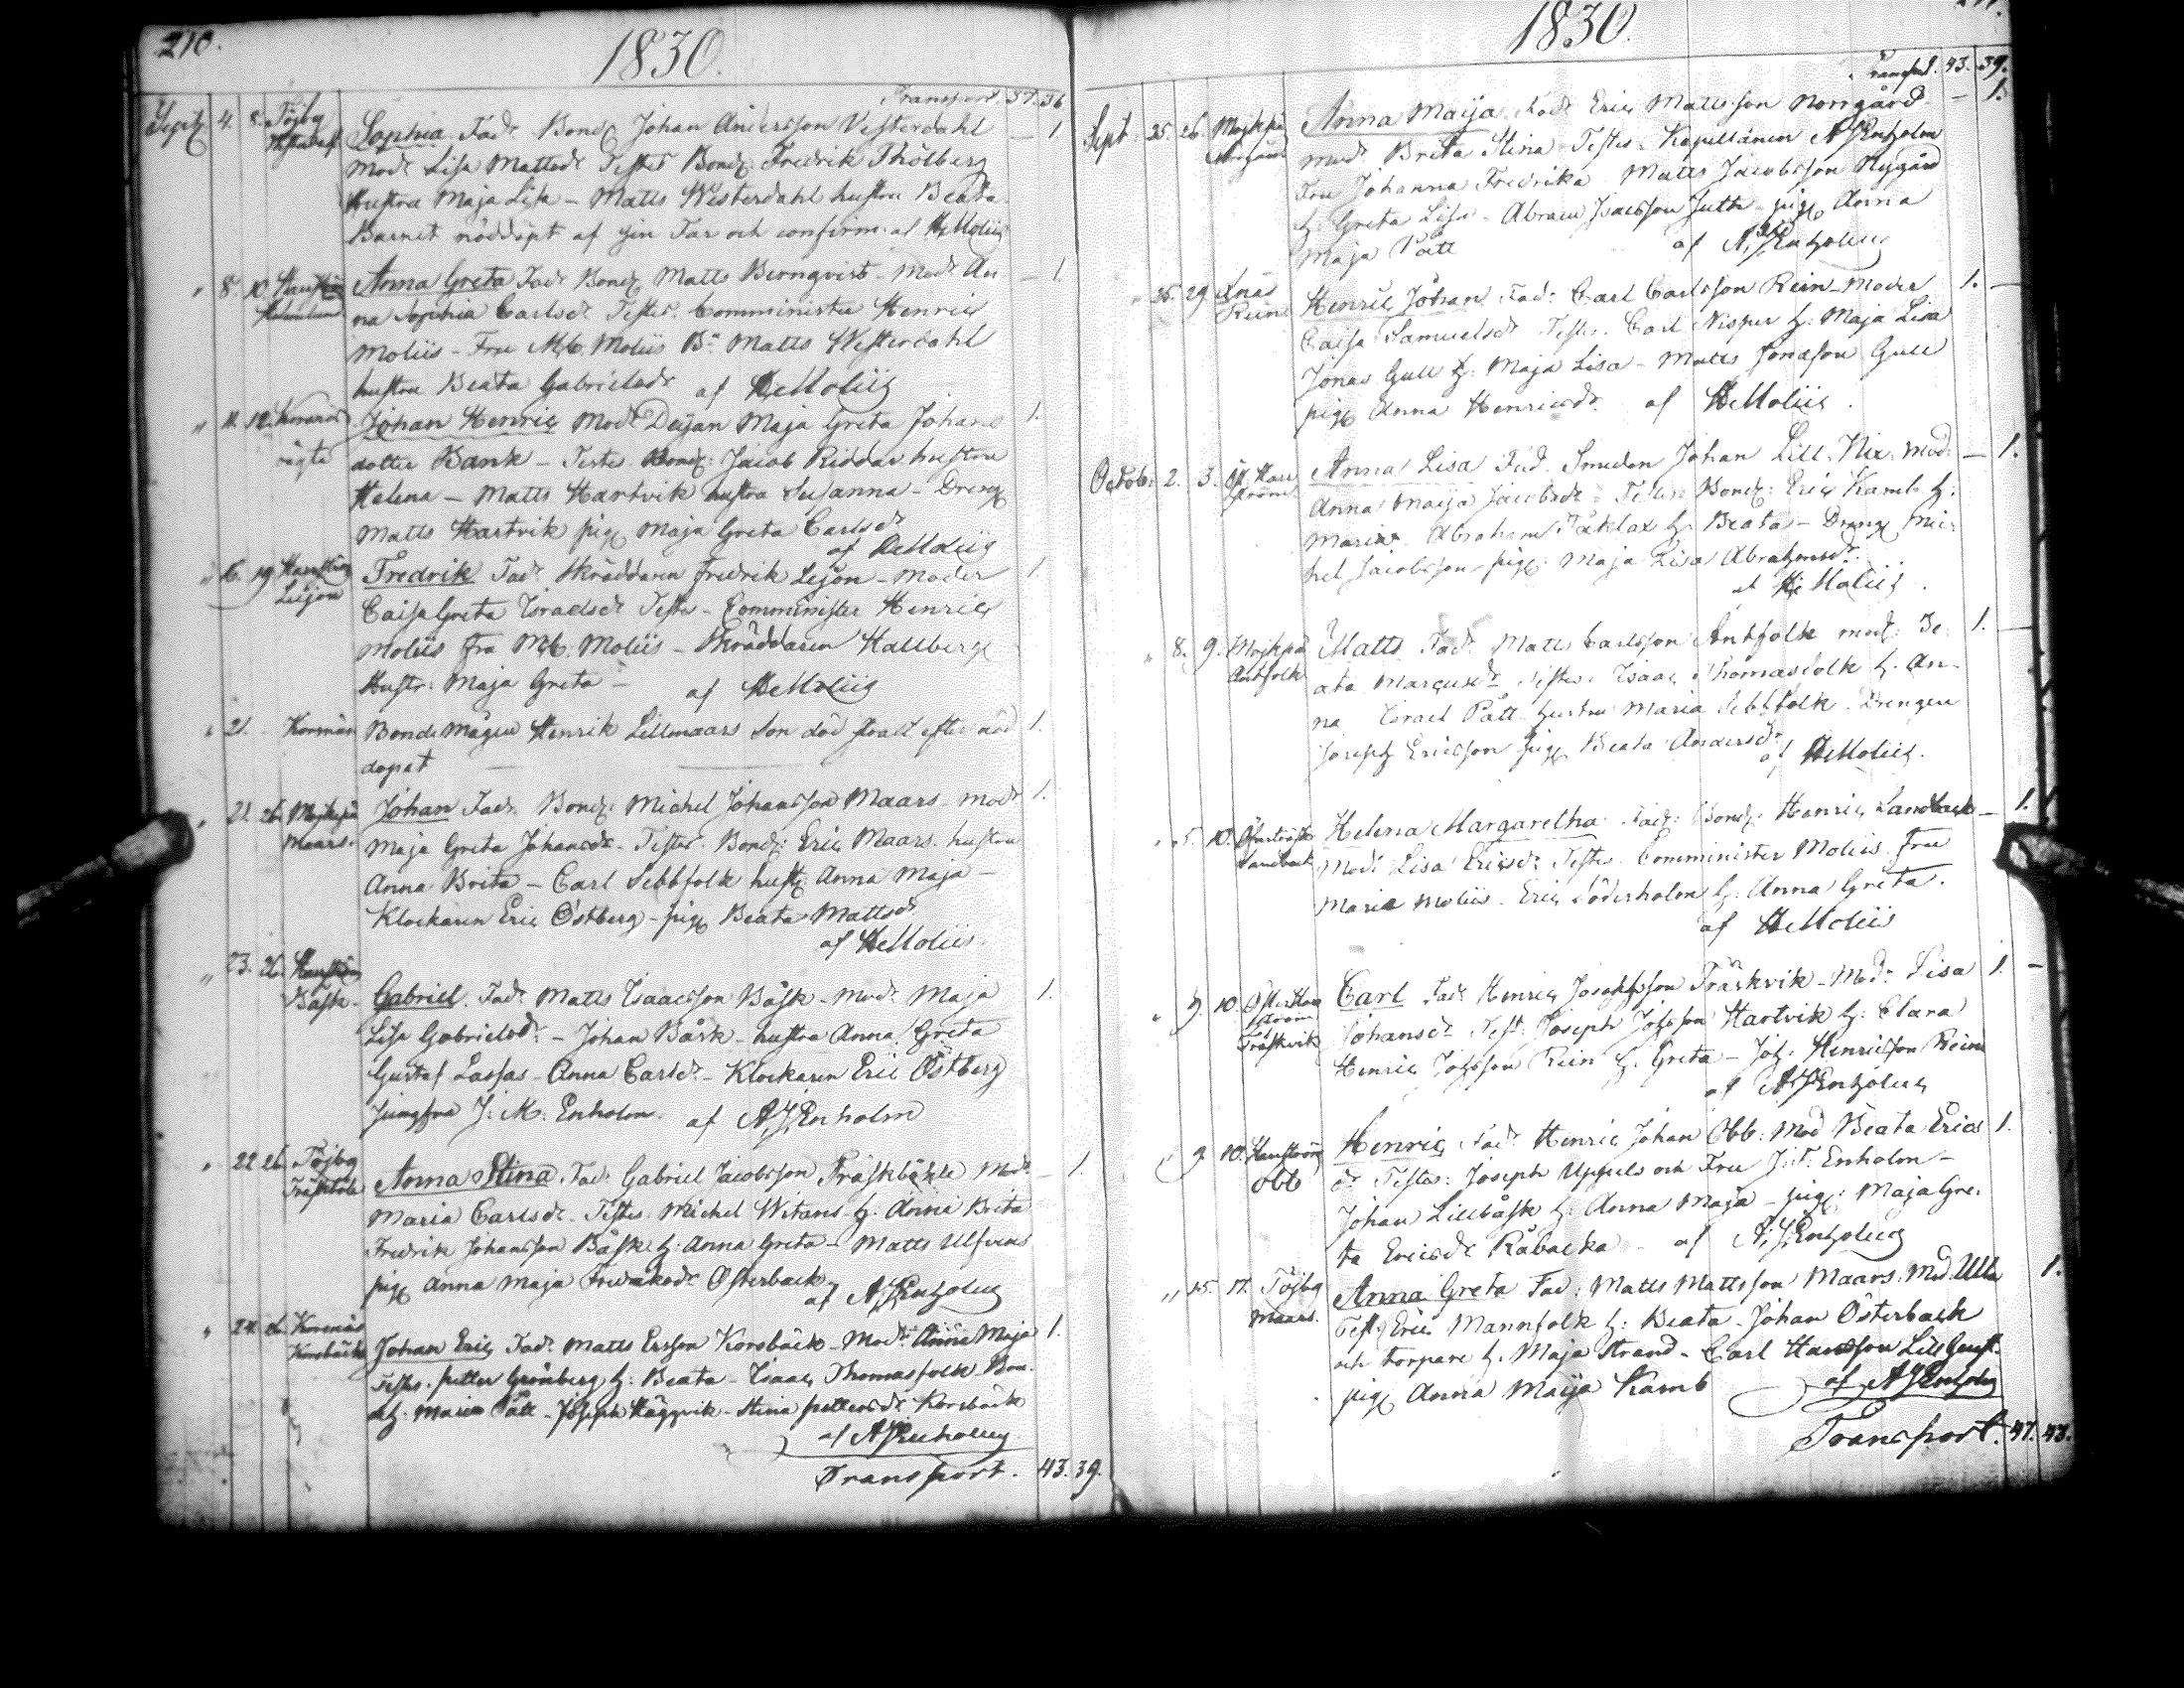 210.
1830.
Transport 37. 36
Septz 4. 8. Töjby Sophia Fad. Bond. Johan Andersson Vesterdahl — 1
Mod. Lisa Mattsdr Testes Bond. Fredrik Thölberg
Hustru Maja Lisa — Matts Westerdahl hustru Beata
Barnet nöddöpt af sin Far och confirm. af HMoliis
" 8. 10. Anna Greta Fad. Bond. Matts Berngvist — Mod. An — 1
na Sophia Carlsdr Testes. Comminister Henric
Moliis — Fru Moliis Bn Matts Westerdahl
hustru Beata Gabrielsdr af HMoliis
" 11. 12. Johan Henric Mod. Dejan Maja Greta Johans 1.
dotter Bank — Testes. Bond. Jacob Riddar hustru
Helena — Matts Hartvik hustru Susanna — Dreng
Matts Hartvik pig. Maja Greta Carlsdr
af HMoliis
" 16. 19. Fredrik Fad. Skräddaren Fredrik Lejon — Moder 1.
Lejon Caisa Greta Israelsdr Testes — Comminister Henric
Moliis fru Moliis — Skräddaren Hallberg
Hustr. Maja Greta — af HMoliis
" 21. Korsnäs Bonde Mågen Henrik Lillmaars Son död straxt efter nöd 1.
döpat
" 21. 26. Mojkpä Johan Fad. Bond. Michel Johansson Maars — Mod. 1.
Maars. Maja Greta Johansdr — Testes. Bond. Eric Maars. hustru
Anna Brita — Carl Sebbfolk hust. Anna Maja —
Klockaren Eric Östberg — pig. Beata Mattsdr
af HMoliis.
" 23. 26. Gabriel. Fad. Matts Isaacsson Båsk — Mod. Maja 1.
Båsk — Lisa Gabrielsdr. — Johan Båsk — hustru Anna Greta
Gustaf Lassas — Anna Carlsdr — Klockaren Eric Östberg
Jungfru J. M. Enholm. af AJEnholm
" 22 26. Töjby Anna Stina. Fad. Gabriel Jacobsson Träskböhle Mod. — 1.
Maria Carlsdr — Testes. Michel Witans h. Anna Brita
Fredrik Johansson Båsk h. Anna Greta — Matts Ulfvens
pig. Anna Maja Fredriksdr Österback
af AJEnholm
" 24. 26. Korsnäs Johan Eric Fad. Matts Ersson Korsbäck — Mod. Anna Maja 1.
Korsbäck Testes. Petter Grönberg h. Beata — Isaac Thomasfolk
h. Maria Pått — Joseph Häggvik — Stina Pettersdr Korsbäck
af AJEnholm
Transport. 43. 39.
1830.
Transport. 43. 39.
Sept. 25. 26. Mojkpä Anna Maija Fad. Eric Mattsson Norrgård — 1.
Norrgård mod. Brita Stina — Testes. Kapellanen AJEnholm
Fru Johanna Fredrika Matts Jacobsson Nygård
h. Greta Lisa — Abram Isacsson Juth — pig. Anna
Maja Pått af AJEnholm
" 26. 29. Henric Johan. Fad. Carl Carlsson Rein — Moder 1. —
Rein Caisa Samuelsdr Testes. Carl Nisper h. Maja Lisa
Jonas Gull h. Maja Lisa — Matts Jonasson Gull
pig. Anna Henricsdr. af HMoliis.
October 2. 3. Anna Lisa Fad. Smeden Johan Lill. Nix. mod. — 1.
Anna Maija Jacobsdr — Testes Bond. Eric Kamb h.
Maria. Abraham Täklax h. Beata — Dreng Mic
hel Jacobsson — pig. Maja Lisa Abrahamsdr.
af HMoliis.
" 8. 9. Mojkpä Matts Fad. Matts Carlsson Antfolk mod. Be 1. —
Antfolk ata Marcusdr Testes. Isaac Thomasfolk h. An-
na Israel Pått hustru Maria Sebbfolk. Drengen
Joseph Ericsson pig. Beata Andersdr
af HMoliis.
" 5. 10. Helena Margaretha. Fad. Bond. Henric Sandback — 1.
Sandback Mod. Lisa Ericsdr Testes. Comminister Moliis. Fru
Maria Moliis. Eric Söderholm h. Anna Greta.
af HMoliis
" 9. 10. Carl Fad. Henric Josephsson Träskvik — Mod. Lisa 1. —
Träskvik Johansdr Test. Joseph Johsson Hartvik h. Clara
Henric Johsson Rein h. Greta — Joh. Henricsson Rein
af AJEnholm
" 9 10. Henric Fad. Henric Johan Obb. Mod Beata Erics 1.
Obb dr Testes. Joseph Uppels och Fru Enholm —
Johan Lillbåsk h. Anna Maja — pig. Maja Gre.
ta Ericsdr Råbacka — af AJEnholm
" 15. 17. Töjby Anna Greta Fad. Matts Mattsson Maars. Mod. Ulla 1.
Maars. Test. Eric Mannfolk h. Beata — Johan Österback
och torpare h. Maja Strand — Carl Hansson Lill
pig. Anna Maija Kamb af AJEnholm
Transport. 47. 43.